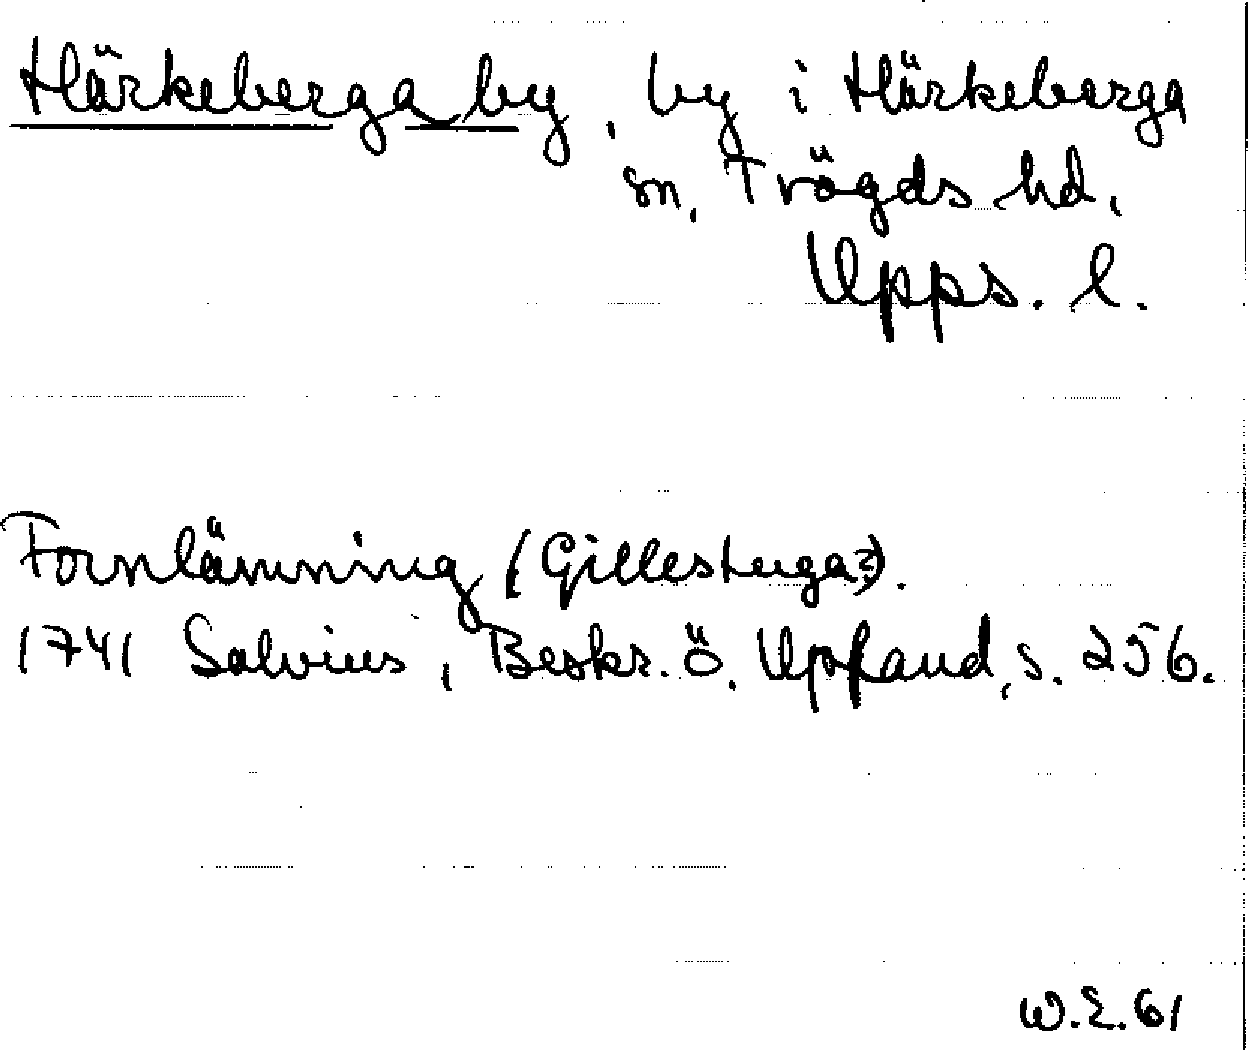 Härkeberga by, by i Härkeberga
sn, Trögds hd,
Upps. l.
Fornlämning (Gillestuga?).
1741 Salvius, Beskr. ö. Uppland, s. 256.
W.E. 61